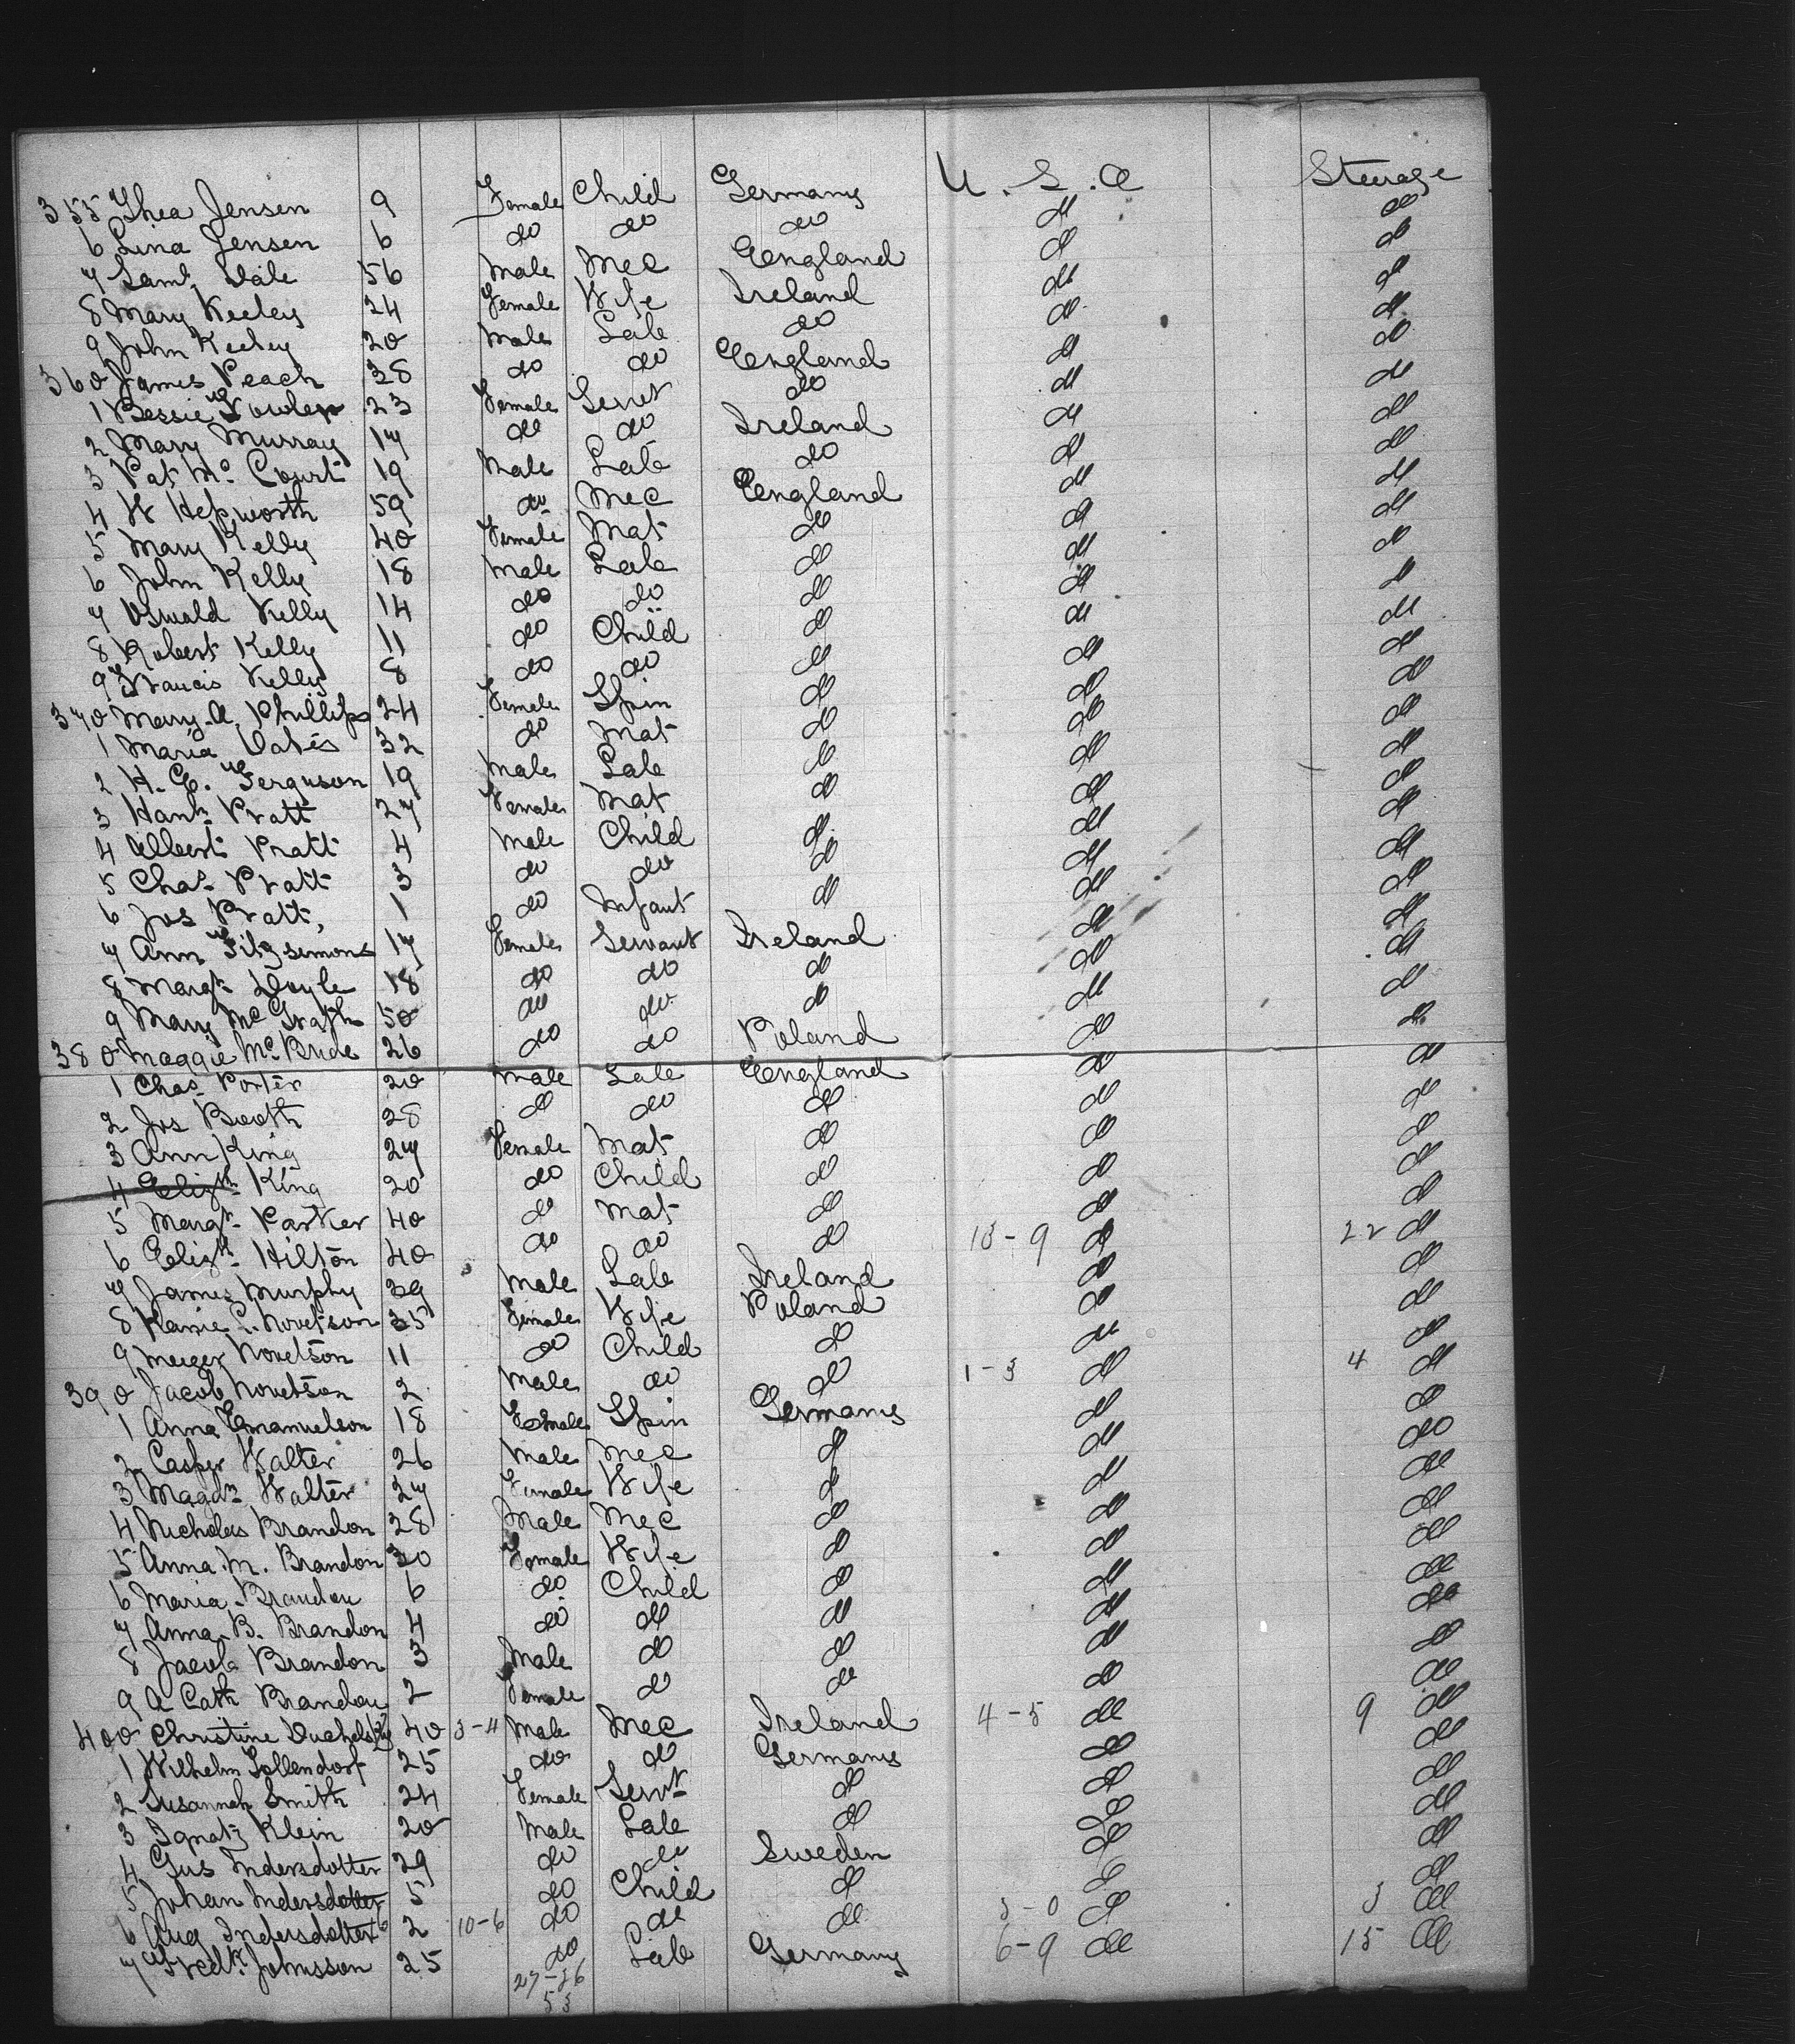 355 Thea Jensen 9 Female Child Germany U.S.A Steerage
6 Lina Jensen 6 do do do do do
7 Saml. Dale 56 Male Mec England do do
8 Mary Keeley 24 Female Wife Ireland do do
9 John Keeley 20 Male Lab do do do
360 James Peach 38 do do England do do
1 Bessie Fowler 23 Female Servt do do do
2 Mary Murray 17 do do Ireland do do
3 Pat Mc Court 19 Male Lab do do do
4 W Hepworth 59 do Mec England do do
5 Mary Kelly 40 Female Mat do do do
6 John Kelly 18 Male Lab do do do
7 Oswald Kelly 14 do do do do do
8 Robert Kelly 11 do Child do do do
9 Francis Kelly 8 do do do do do
370 Mary A. Phillips 24 Female Spin do do do
1 Maria Oates 32 do Mat do do do
2 H. E. Ferguson 19 Male Lab do do do
3 Hanh Pratt 27 Female Mat do do do
4 Albert Pratt 4 Male Child do do do
5 Chas Pratt 3 do do do do do
6 Jos Pratt, 1 do Infant do do do
7 Ann Fitzsimons 17 Female Servant Ireland do do
8 Margt Doyle 18 do do do do do
9 Mary McGrath 50 do do do do do
380 Maggie Mc Bride 26 do do Poland do do
1 Chas Porter 20 Male Lab England do do
2 Jos Booth 28 do do do do do
3 Ann King 27 Female Mat do do do
4 Elizth King 20 do Child do do do
5 Margt Parker 40 do Mat do do do
6 Elizth Hilton 40 do do do 13-9 do 22 do
7 James Murphy 39 Male Lab Ireland do do
8 Novetson 35 Female Wife Poland do do
9 Meizer Novetson 11 do Child do do do
390 Jacob Novetson 2 Male do do 1-3 do 4 do
1 Anna Emanuelson 18 Female Spin Germany do do
2 Casper Walter 26 Male Mec do do do
3 Magdz Walter 27 Female Wife do do do
4 Nicholas Brandon 28 Male Mec do do do
5 Anna M. Brandon 30 Female Wife do do do
6 Maria Brandon 6 do Child do do do
7 Anna B. Brandon 4 do do do do do
8 Jacob Brandon 3 Male do do do do
9 A Cath Brandon 2 Female do do do do
400 Christine 40 3-4 Male Mec Ireland 4-5 do 9 do
1 Wilhelm Lollendorf 25 do do Germany do do
2 Susannah Smith 24 Female Servt do do do
3 Ignatz Klein 20 Male Lab do do do
4 Gus Indersdotter 29 do do Sweden do do
5 Johan Indersdotter 5 do Child do do do
6 Aug Indersdotter 2 10-6 do do do 3-0 do 3 do
7 Fredk Johnsson 25 do Lab Germany 6-9 do 15 do
27-26
53